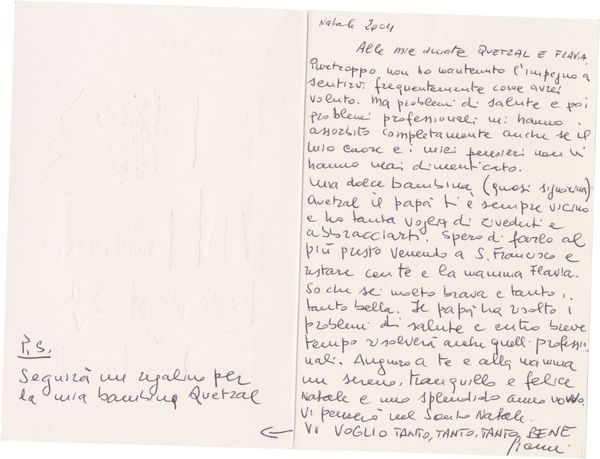 P.S.
Seguirà un regalino per
la mia bambina Quetzal
Natale 2004
Alle mie amate QUETZAL E FLAVIA.
Purtroppo non ho mantenuto l'impegno a
sentirvi frequentemente come avrei
voluto. Ma problemi di salute e poi
problemi professionali mi hanno
assorbito completamente anche se il
mio cuore e i miei pensieri non vi
hanno mai dimenticato.
Mia dolce bambina (quasi signorina)
Quetzal il papà ti è sempre vicino
e ho tanta voglia di rivederti e
abbracciarti. Spero di farlo al
più presto venendo a S. Francisco e
restare con te e la mamma Flavia.
So che sei molto brava e tanto,
tanto bella. Il papà ha risolto i
problemi di salute e entro breve
tempo risolverà anche quelli professio-
nali. Auguro a te e alla mamma
un sereno, tranquillo e felice
Natale e uno splendido anno nuovo.
Vi penserò nel Santo Natale.
VI VOGLIO TANTO, TANTO, TANTO BENE